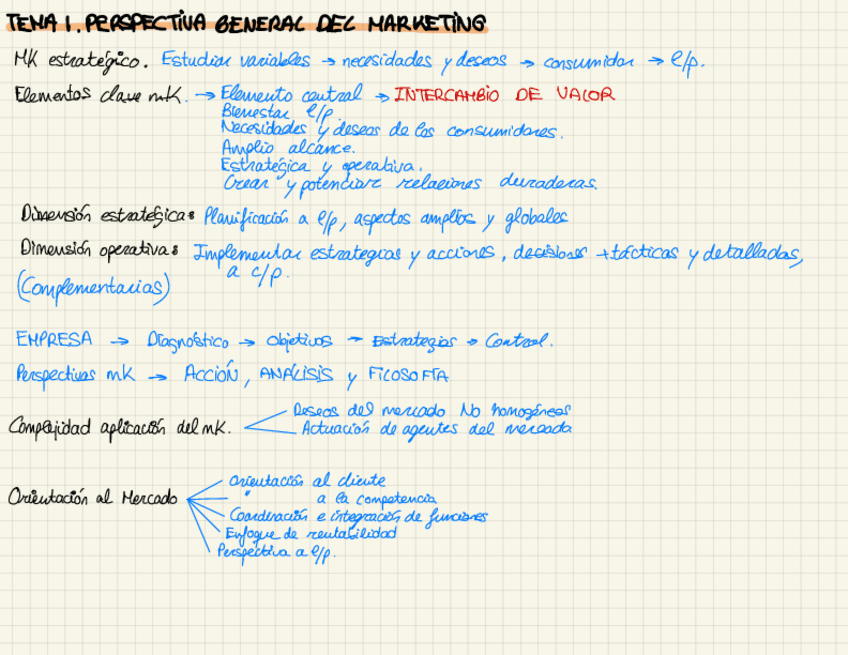 TEMA 1. PERSPECTIVA GENERAL DEL MARKETING
MK estratégico. Estudiar variables → necesidades y deseos → consumidor → l/p.
Elementos clave mK. → Elemento central → INTERCAMBIO DE VALOR
Bienestar l/p.
Necesidades y deseos de los consumidores.
Amplio alcance.
Estratégica y operativa.
Crear y potenciar relaciones duraderas.
Dimensión estratégica: Planificación a l/p, aspectos amplios y globales
Dimensión operativa: Implementar estrategias y acciones, decisiones + tácticas y detalladas,
a c/p.
(Complementarias)
EMPRESA → Diagnóstico → Objetivos → Estrategias → Control.
Perspectivas mK → ACCIÓN, ANÁLISIS y FILOSOFÍA
Complejidad aplicación del mK.
Deseos del mercado No homogéneos
Actuación de agentes del mercado
Orientación al Mercado
Orientación al cliente
" a la competencia
Coordinación e integración de funciones
Enfoque de rentabilidad
Perspectiva a l/p.